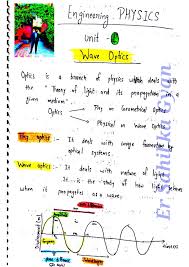 Engineering PHYSICS
Unit -
Wave Optics
Optics is a branch of physics which deals with
the "Theory of light and its propagation in a
given medium".
Optics :- Phy or Geometrical Optics
Physical or Wave Optics.
Phy optics :- It deals with image formation by
optical systems.
Wave optics :- It deals with nature of light.
It is the study of how light behaves
when it propagates as a wave.
Amplitude